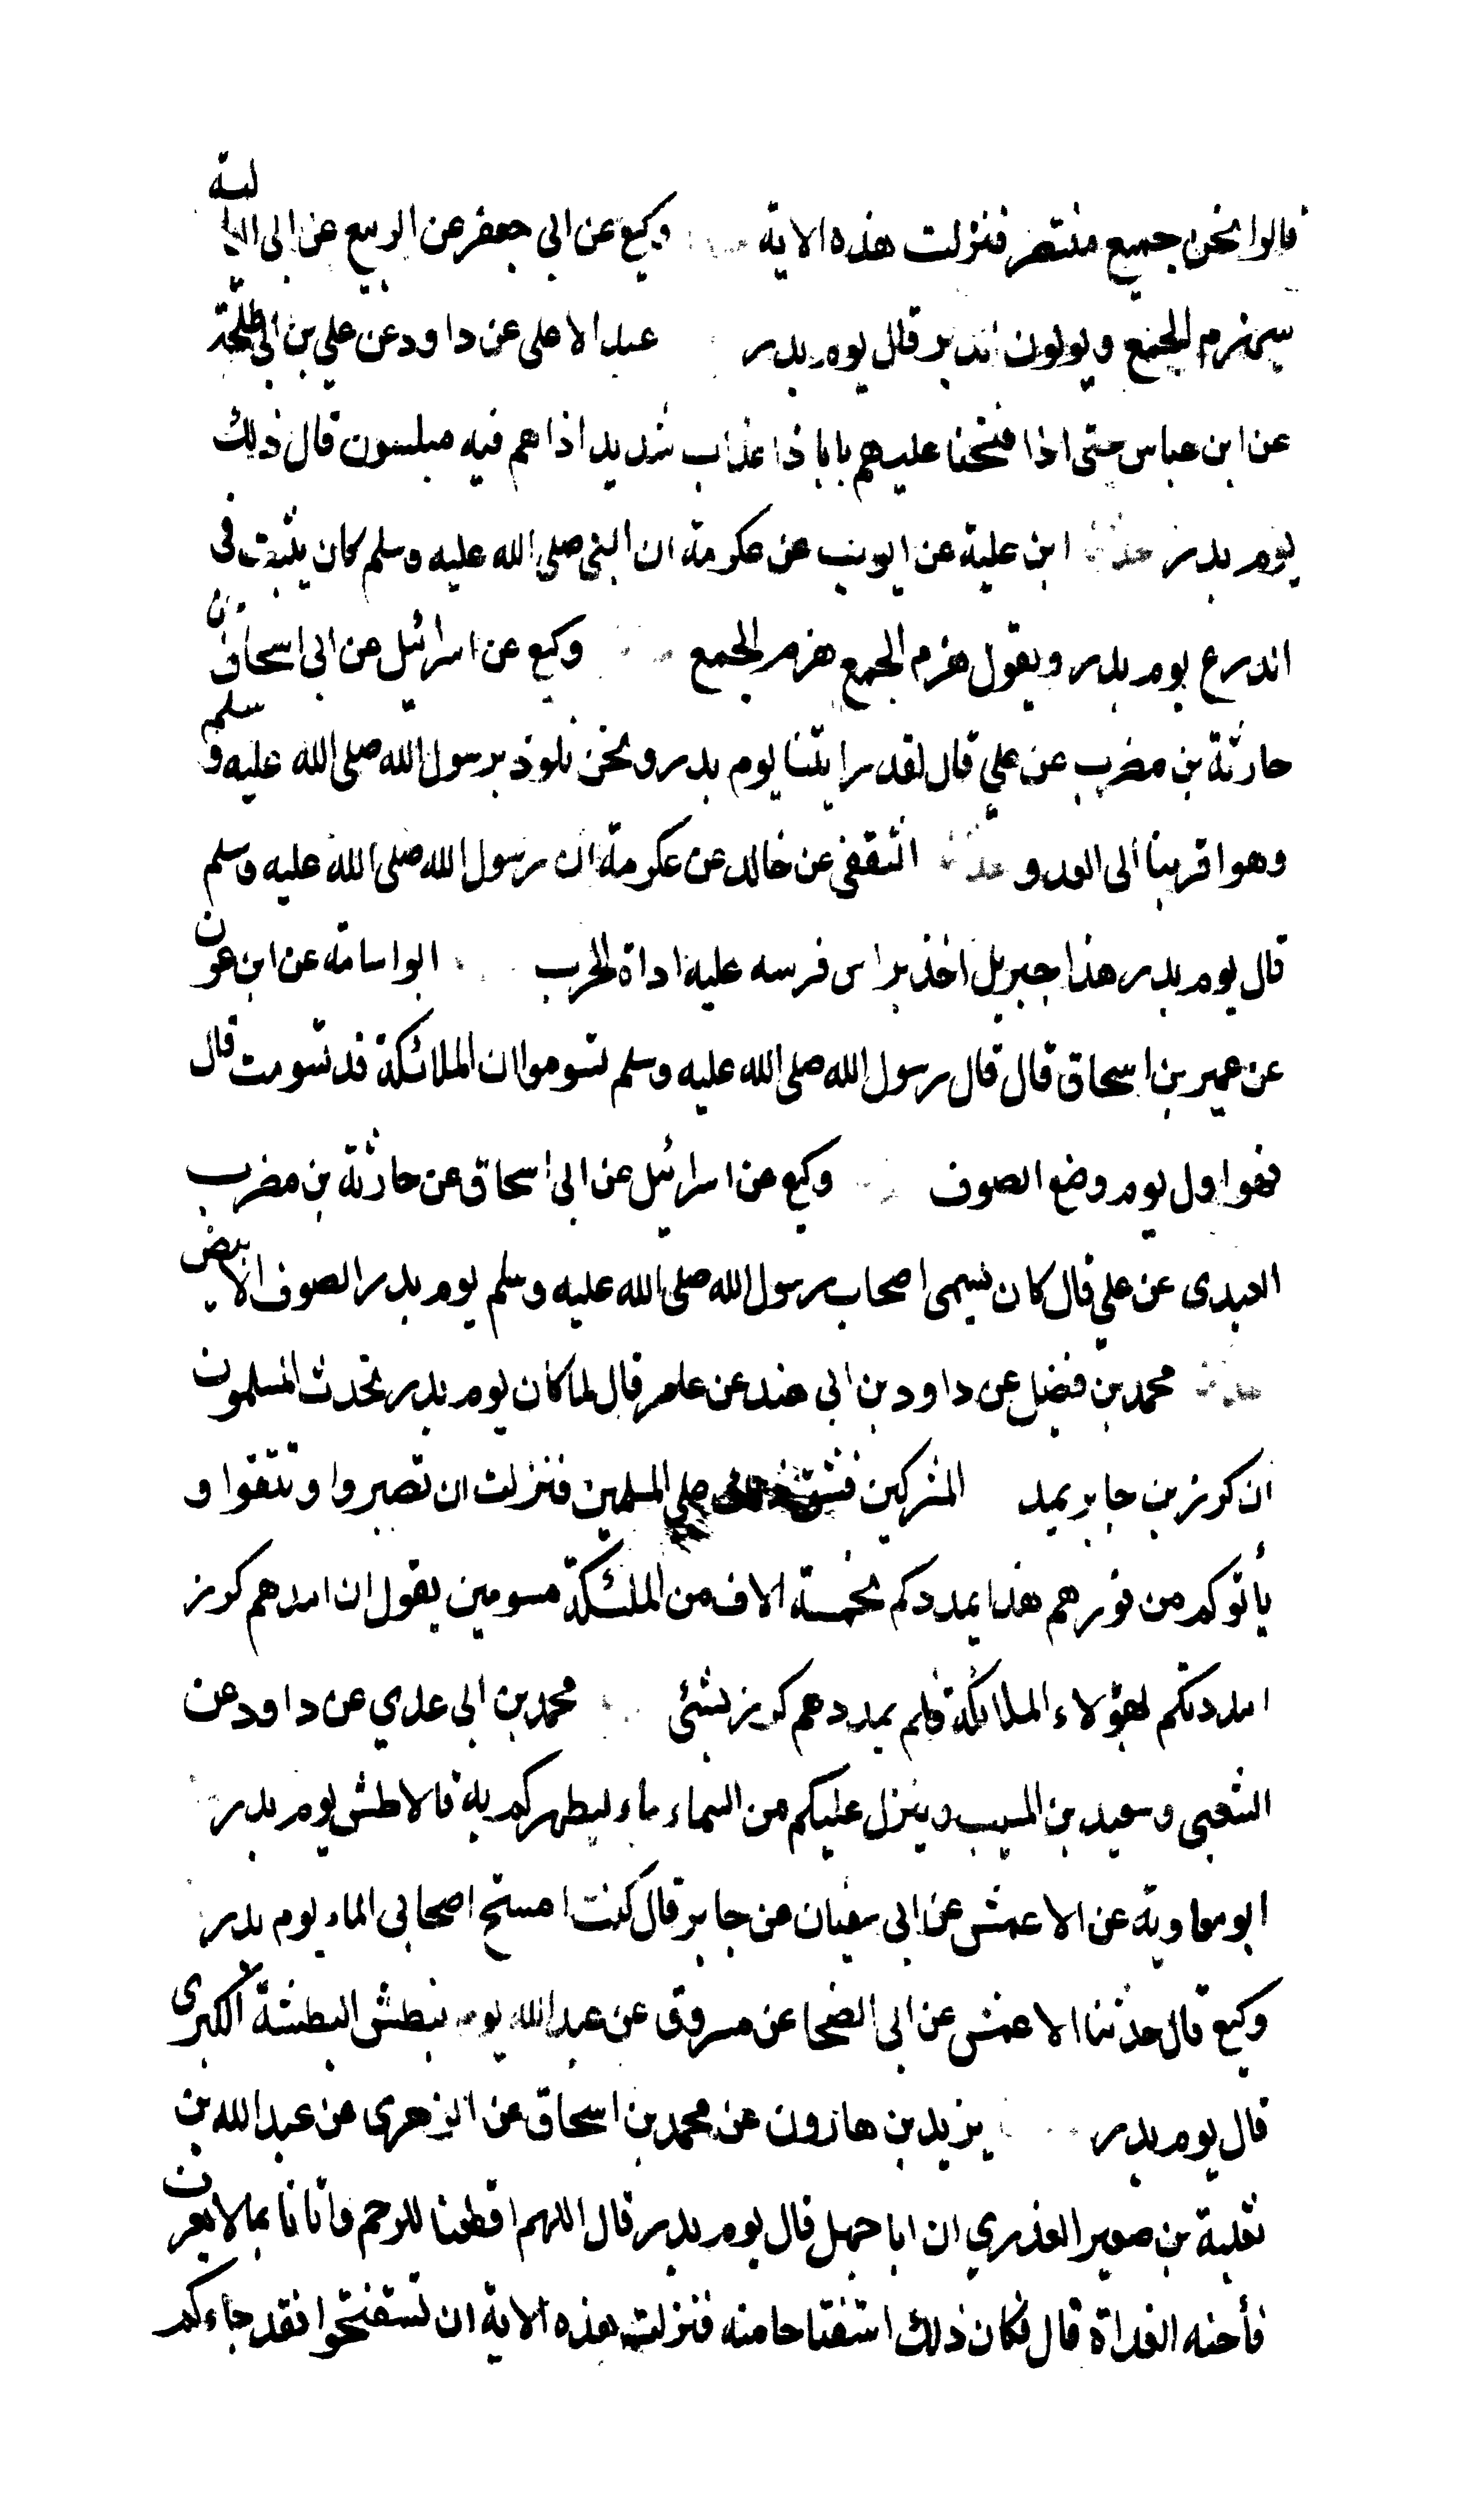 قالوا نحن جميع منتصر فنزلت هذه الاية وكيع عن ابي جعفر عن الربيع عن ابي العالية
سيهزم الجمع ويولون الدبر قال يوم بدر عبد الاعلى عن داود عن علي بن ابي طلحة
عن ابن عباس حتى اذا فتحنا عليهم بابا ذا عذاب شديد اذا هم فيه مبلسون قال ذلك
يوم بدر حدثنا ابن علية عن ايوب عن عكرمة ان النبي صلى الله عليه وسلم كان يثبت في
الدرع يوم بدر ويقول هزم الجمع هزم الجمع وكيع عن اسرائيل عن ابي اسحاق عن
حارثة بن مضرب عن علي قال لقد رايتنا يوم بدر ونحن نلوذ برسول الله صلى الله عليه وسلم
وهو اقربنا الى العدو حدثنا الثقفي عن خالد عن عكرمة ان رسول الله صلى الله عليه وسلم
قال يوم بدر هذا جبريل اخذ براس فرسه عليه اداة الحرب ابو اسامة عن ابن عون
عن عمير بن اسحاق قال قال رسول الله صلى الله عليه وسلم تسوموا ان الملائكة قد تسومت قال
فهو اول يوم وضع الصوف وكيع عن اسرائيل عن ابي اسحاق عن حارثة بن مضرب
العبدي عن علي قال كان سيمى اصحاب رسول الله صلى الله عليه وسلم يوم بدر الصوف الابيض
حدثنا محمد بن فضيل عن داود بن ابي هند عن عامر قال لما كان يوم بدر تحدث المسلمون
ان كرز بن جابر يمد المشركين فشق على المسلمين فنزلت ان تصبروا وتتقوا و
يأتوكم من فورهم هذا يمددكم بخمسة الاف من الملئكة مسومين يقول ان امدهم كرز
امددتكم بهؤلاء الملائكة فلم يمددهم كرز بشئ محمد بن ابي عدي عن داود عن
الشعبي وسعيد بن المسيب وينزل عليكم من السماء ماء ليطهركم به قالا طش يوم بدر
ابو معاوية عن الاعمش عن ابي سفيان عن جابر قال كنت امتح اصحابي الماء يوم بدر
وكيع قال حدثنا الاعمش عن ابي الضحا عن مسروق عن عبد الله يوم نبطش البطشة الكبرى
قال يوم بدر يزيد بن هارون عن محمد بن اسحاق عن الزهري عن عبد الله بن
ثعلبة بن صعير العذري ان ابا جهل قال يوم بدر قال اللهم اقطعنا للرحم واتانا بما لا يعرف
فأحنه الغداة قال فكان ذلك استفتاحا منه فنزلت هذه الاية ان تستفتحوا فقد جاءكم